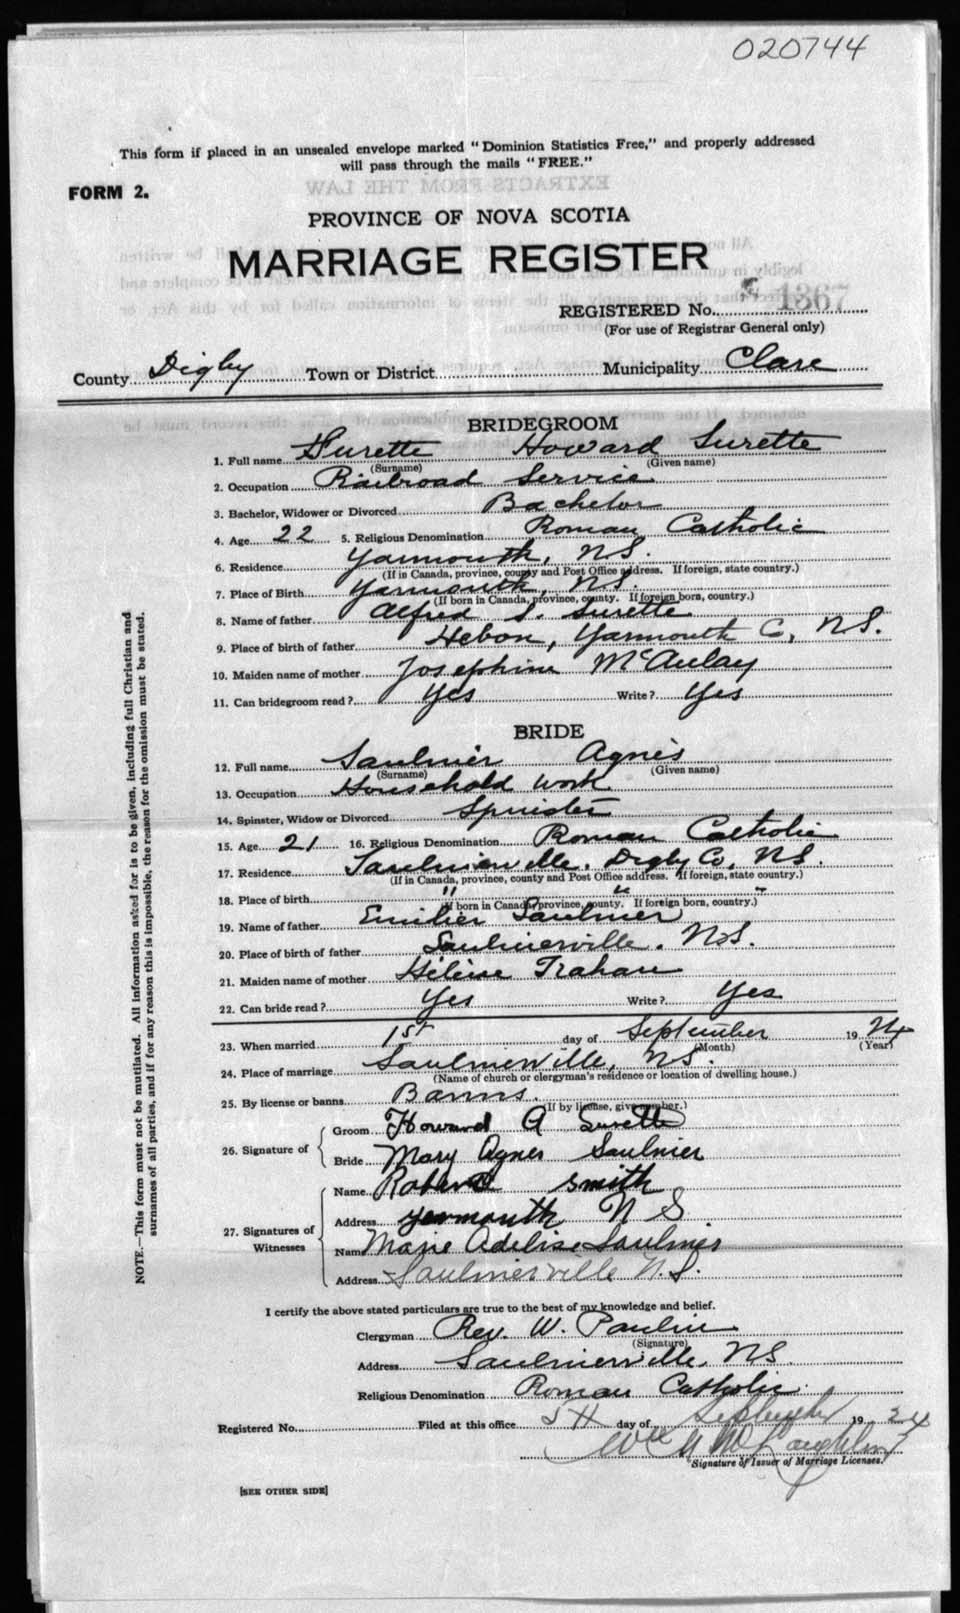 020744
This form if placed in an unsealed envelope marked "Dominion Statistics Free," and properly addressed
will pass through the mails "FREE."
FORM 2.
PROVINCE OF NOVA SCOTIA
MARRIAGE REGISTER
REGISTERED No. 1367
(For use of Registrar General only)
County Digby Town or District Municipality Clare
BRIDEGROOM
1. Full name Surette Howard Surette
(Surname) (Given name)
2. Occupation Railroad Service
3. Bachelor, Widower or Divorced Bachelor
4. Age 22 5. Religious Denomination Roman Catholic
6. Residence Yarmouth, N.S.
(If in Canada, province, county and Post Office address. If foreign, state country.)
7. Place of Birth Yarmouth, N.S.
(If born in Canada, province, county. If foreign born, country.)
8. Name of father Alfred S. Surette
9. Place of birth of father Hebon, Yarmouth Co, N.S.
10. Maiden name of mother Josephine McAulay
11. Can bridegroom read? Yes Write? Yes
BRIDE
12. Full name Saulnier Agnès
(Surname) (Given name)
13. Occupation Household work
14. Spinster, Widow or Divorced Spinster
15. Age 21 16. Religious Denomination Roman Catholic
17. Residence Saulnierville, Digby Co, N.S.
(If in Canada, province, county and Post Office address. If foreign, state country.)
18. Place of birth " " "
(If born in Canada, province, county. If foreign born, country.)
19. Name of father Emilier Saulnier
20. Place of birth of father Saulnierville, N.S.
21. Maiden name of mother Hélène Trahan
22. Can bride read? Yes Write? Yes
23. When married 1st day of September 1924
(Month) (Year)
24. Place of marriage Saulnierville, N.S.
(Name of church or clergyman's residence or location of dwelling house.)
25. By license or banns Banns.
(If by license, give number.)
26. Signature of Groom Howard A Surette
Bride Mary Agnes Saulnier
27. Signatures of Witnesses Name Robert Smith
Address Yarmouth N S
Name Marie Adelise Saulnier
Address Saulnierville N.S.
I certify the above stated particulars are true to the best of my knowledge and belief.
Clergyman Rev. W. Paulin
(Signature)
Address Saulnierville, N.S.
Religious Denomination Roman Catholic
Registered No. Filed at this office 5th day of September 1924
Wm McLaughlin
Signature of Issuer of Marriage Licenses.
[SEE OTHER SIDE]
NOTE.—This form must not be mutilated. All information asked for is to be given, including full Christian and
surnames of all parties, and if for any reason this is impossible, the reason for the omission must be stated.